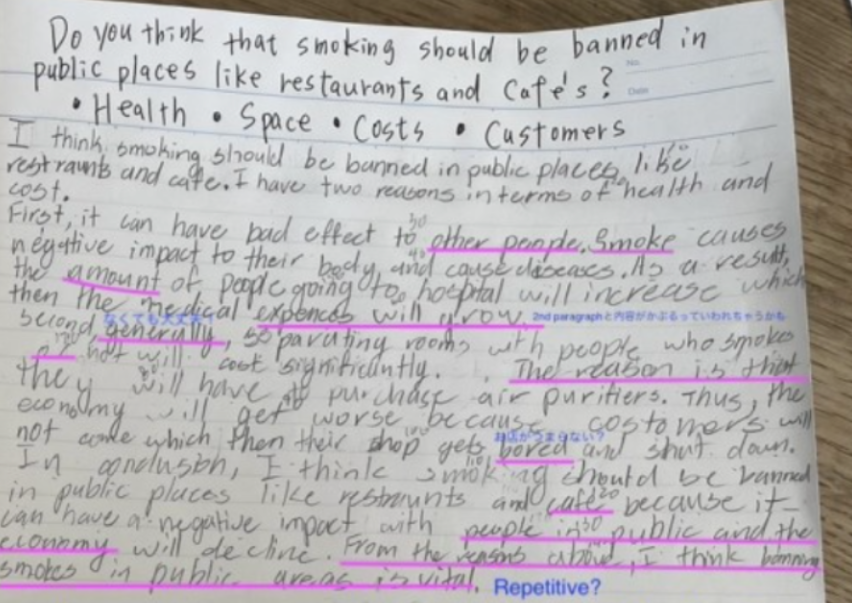 Do you think that smoking should be banned in
public places like restaurants and Cafe's?
No.
Date
• Health • Space • Costs • Customers
I think smoking should be banned in public places like
restraunts and cafe. I have two reasons in terms of health and
cost.
First, it can have bad effect to other people. Smoke causes
negative impact to their body, and cause diseases. As a result,
the amount of people going to hospital will increase which
then the medical expences will grow. 2nd paragraphと内容がかぶるっていわれちゃうかも
なくても大丈夫
second, generally, separating rooms with people who smokes
or not will cost significantly. The reason is that
they will have to purchase air purifiers. Thus, the
economy will get worse because costomers will
お店がつまらない?
not come which then their shop gets bored and shut down.
In conclusion, I think smoking should be banned
in public places like restaurants and cafe because it
can have a negative impact with people in public and the
economy will decline. From the reasons above, I think banning
smokes in public areas is vital. Repetitive?